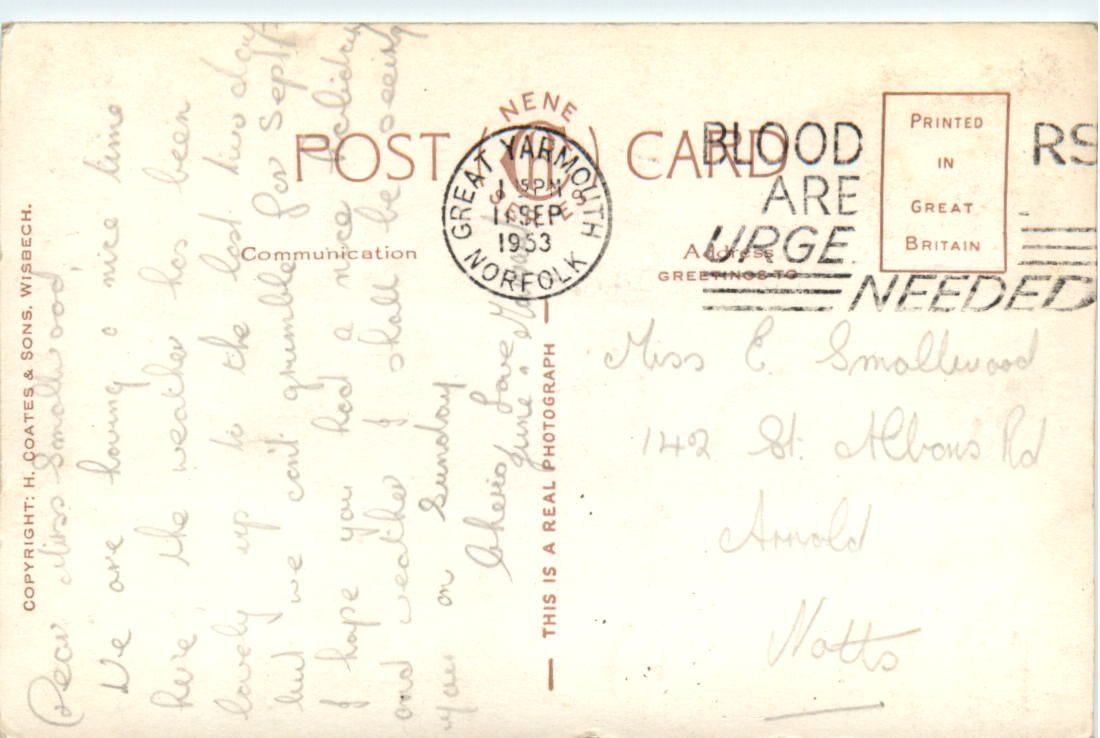 COPYRIGHT: H. COATES & SONS. WISBECH.
POST CARD
NENE
SERIES
Communication
Address
GREETINGS TO
THIS IS A REAL PHOTOGRAPH
PRINTED
IN
GREAT
BRITAIN
GREAT YARMOUTH
15 PM
11 SEP
1953
NORFOLK
BLOOD RS
ARE
URGE
NEEDED
Dear Miss Smallwood,
We are having a nice time
here the weather has been
lovely up to the last two days
but we can't grumble for Sept.
I hope you had a nice holiday
and weather I shall be seeing
you on Sunday
Cherio Love
June.
Miss E. Smallwood
142 St. Albans Rd
Arnold
Notts